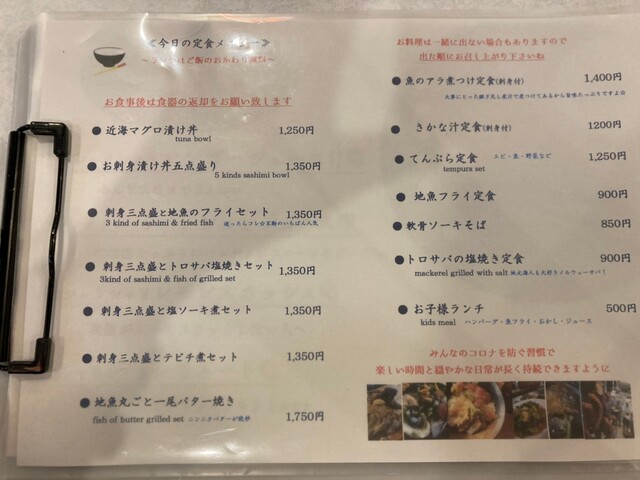 ≪今日の定食メニュー≫
お食事後は食器の返却をお願い致します
● 近海マグロ漬け丼 1,250円
tuna bowl
● お刺身漬け丼五点盛り 1,350円
5 kinds sashimi bowl
● 刺身三点盛と地魚のフライセット 1,350円
3 kind of sashimi & fried fish 迷ったらコレ☆不動のいちばん人気
● 刺身三点盛とトロサバ塩焼きセット 1,350円
3kind of sashimi & fish of grilled set
● 刺身三点盛と塩ソーキ煮セット 1,350円
● 刺身三点盛とテビチ煮セット 1,350円
● 地魚丸ごと一尾バター焼き
fish of butter grilled set ニンニクバターが絶妙 1,750円
お料理は一緒に出ない場合もありますので
出た順にお召し上がり下さいね
● 魚のアラ煮つけ定食(刺身付) 1,400円
● さかな汁定食(刺身付) 1200円
● てんぷら定食 エビ・魚・野菜など 1,250円
tempura set
● 地魚フライ定食 900円
● 軟骨ソーキそば 850円
● トロサバの塩焼き定食 900円
mackerel grilled with salt 地元海人も大好きノルウェーサバ！
● お子様ランチ 500円
kids meal ハンバーグ・魚フライ・おかし・ジュース
みんなのコロナを防ぐ習慣で
楽しい時間と穏やかな日常が長く持続できますように